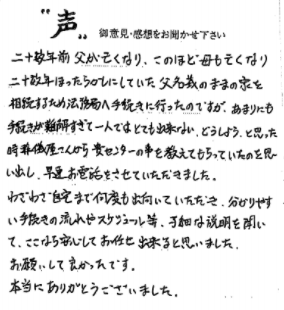 "声" 御意見・感想をお聞かせ下さい
二十数年前父が亡くなり、このほど母も亡くなり
二十数年ほったらかしにしていた父名義のままの家を
相続するため法務局へ手続きに行ったのですが、あまりにも
手続きが難解すぎて一人ではとても出来ない、どうしよう、と思った
時葬儀屋さんから貴センターの事を教えてもらっていたのを思
い出し、早速お電話をさせていただきました。
わざわざ自宅まで何度も出向いていただき、分かりやす
い手続きの流れやスケジュール等、丁寧な説明を聞い
て、ここなら安心してお任せ出来ると思いました。
お願いして良かったです。
本当にありがとうございました。